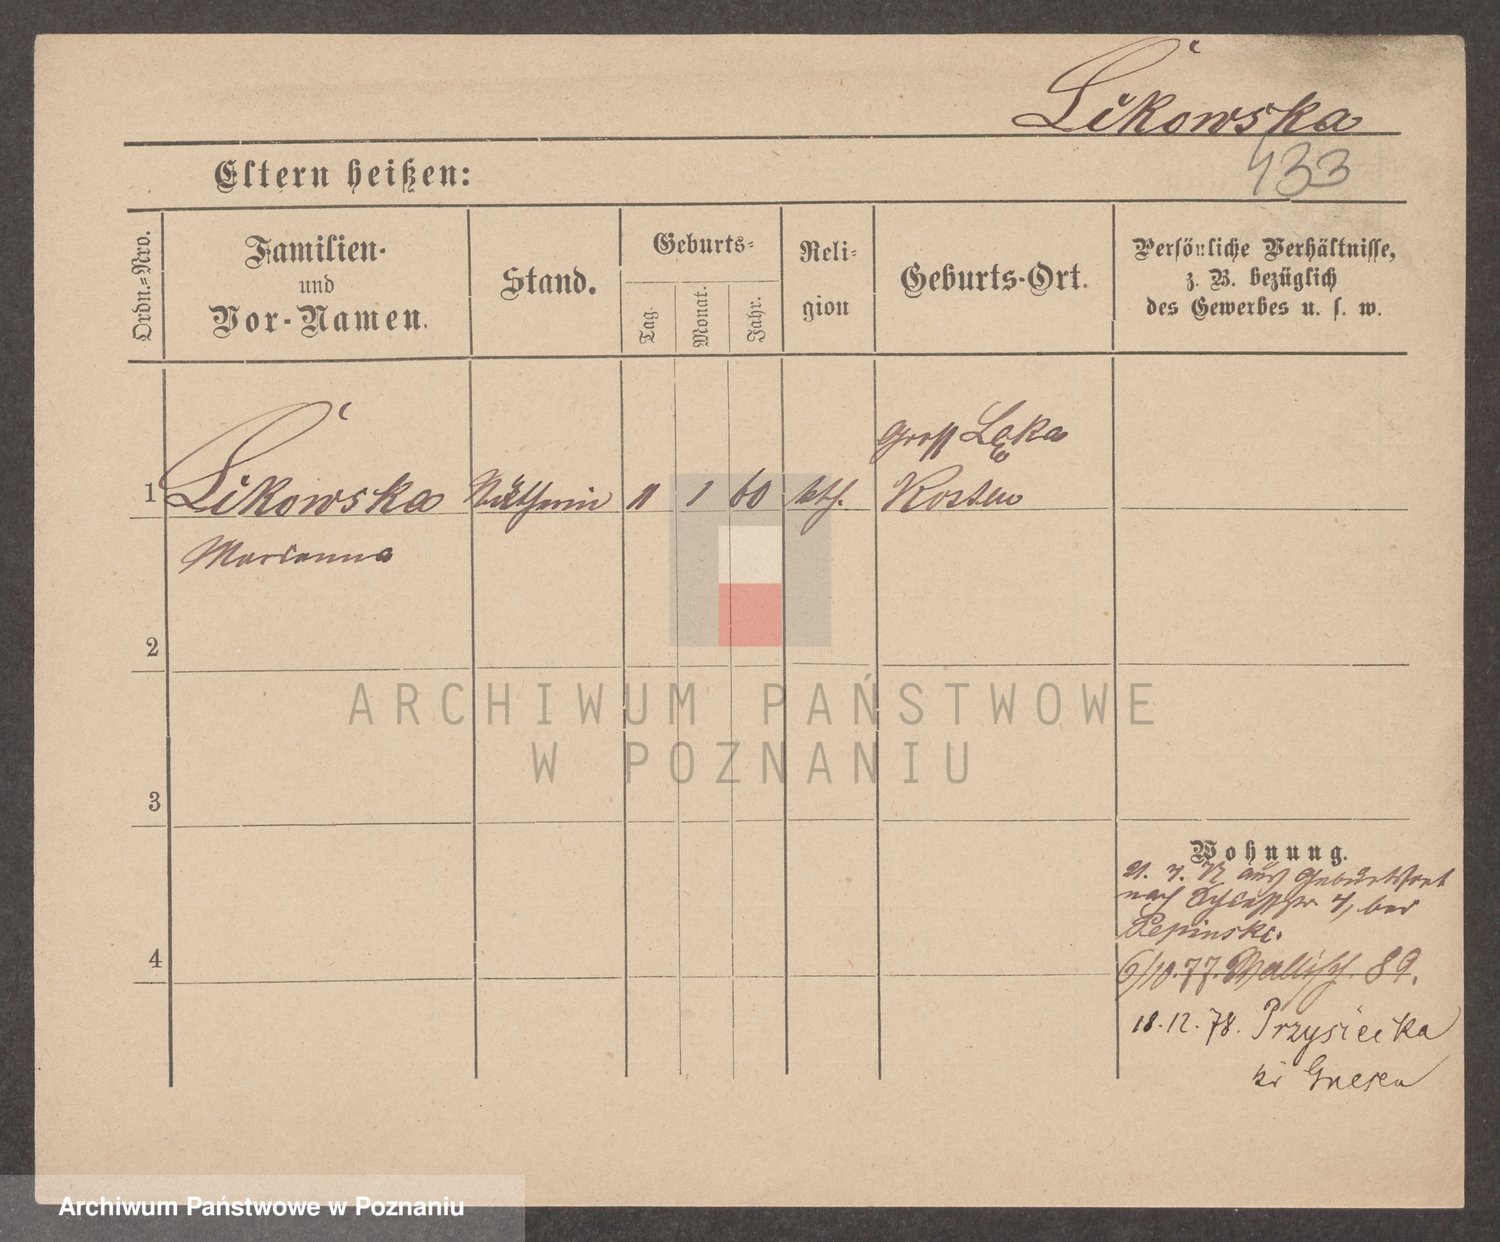 Likowska
433
Eltern heißen:
Ordn.=Nro.
Familien-
und
Vor-Namen.
Stand.
Geburts-
Tag.
Monat.
Jahr.
Reli-
gion
Geburts-Ort.
Persönliche Verhältnisse,
z. B. bezüglich
des Gewerbes u. s. w.
Gross Lęka
1 Likowska Nätherin 11 1 60 kth. Kosten
Marianna
2
ARCHIWUM PAŃSTWOWE
W POZNANIU
3
Wohnung.
7. 77 aus Geburtsort
nach 4, bei
Pepinski.
9/10.77. Wallisch. 89.
4
18.12.78. Przysiecka
bei Gnesen
Archiwum Państwowe w Poznaniu